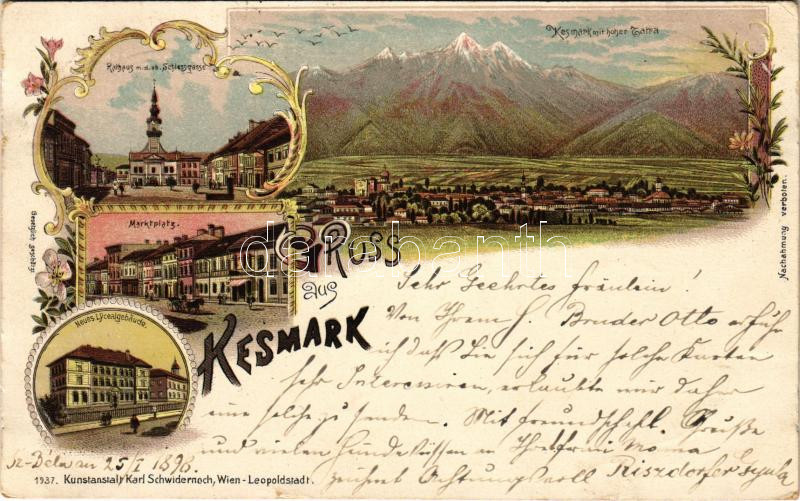 Kesmark mit hoher Tatra
Rathaus m. d. ob. Schlossgasse.
Marktplatz.
Neues Lycealgebäude.
Gesetzlich geschützt
Nachahmung verboten.
GRUSS
aus
KESMARK
darabanth
Sehr Geehrtes Fräulein!
Von Ihrem H. Bruder Otto erfuhr
ich daß Sie sich für solche Karten
sehr Interessiren, erlaubte mir daher
eine solche zu senden. Mit freundschaftl. Grüße
und vielen Handküssen an Ihre Mama
zeichnet Achtungsvoll Riszdorfer Gyula
Sz-Béla am 25/I 1898.
1937. Kunstanstalt Karl Schwidernoch, Wien - Leopoldstadt.